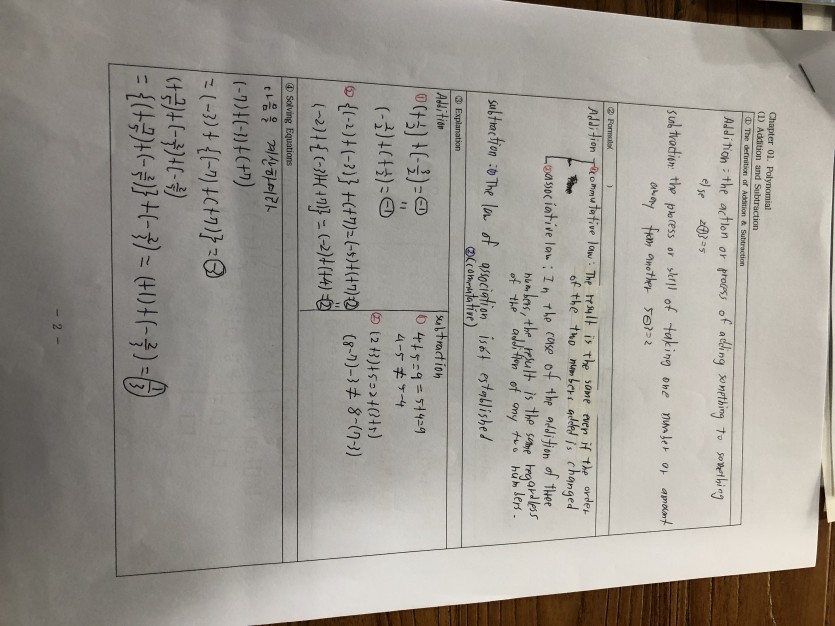 Chapter 01. Polynomial
(1) Addition and Subtraction
① The definition of Addition & Subtraction
Addition : the action or process of adding something to something
else 2⊕3=5
subtraction: the process or skill of taking one number or amount
away from another 5⊖3=2
② Formula( )
Addition ①commutative law: The result is the same even if the order
of the two numbers added is changed
②associative law: In the case of the addition of three
numbers, the result is the same regardless
of the addition of any two numbers.
subtraction: ① The law of association isn't established
②(commutative)
③ Explanation
Addition
① (+1/2)+(-3/2)=(-1)
"
(-3/2)+(+1/2)=(-1)
② {(-2)+(-3)}+(+7)=(-5)+(+7)=②
"
(-2)+{(-3)+(+7)}=(-2)+(+4)=②
subtraction
① 4+5=9=5+4=9
4-5≠5-4
② (2+3)+5=2+(3+5)
(8-7)-3≠8-(7-3)
④ Solving Equations
다음을 계산하여라
(-7)+(-3)+(+7)
=(-3)+{(-7)+(+7)}=(-3)
- 2 -